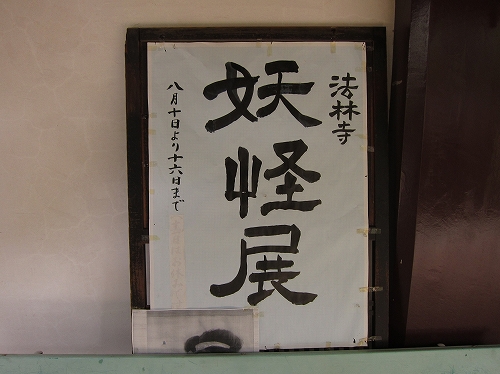 法林寺
妖怪展
八月十日より十六日まで